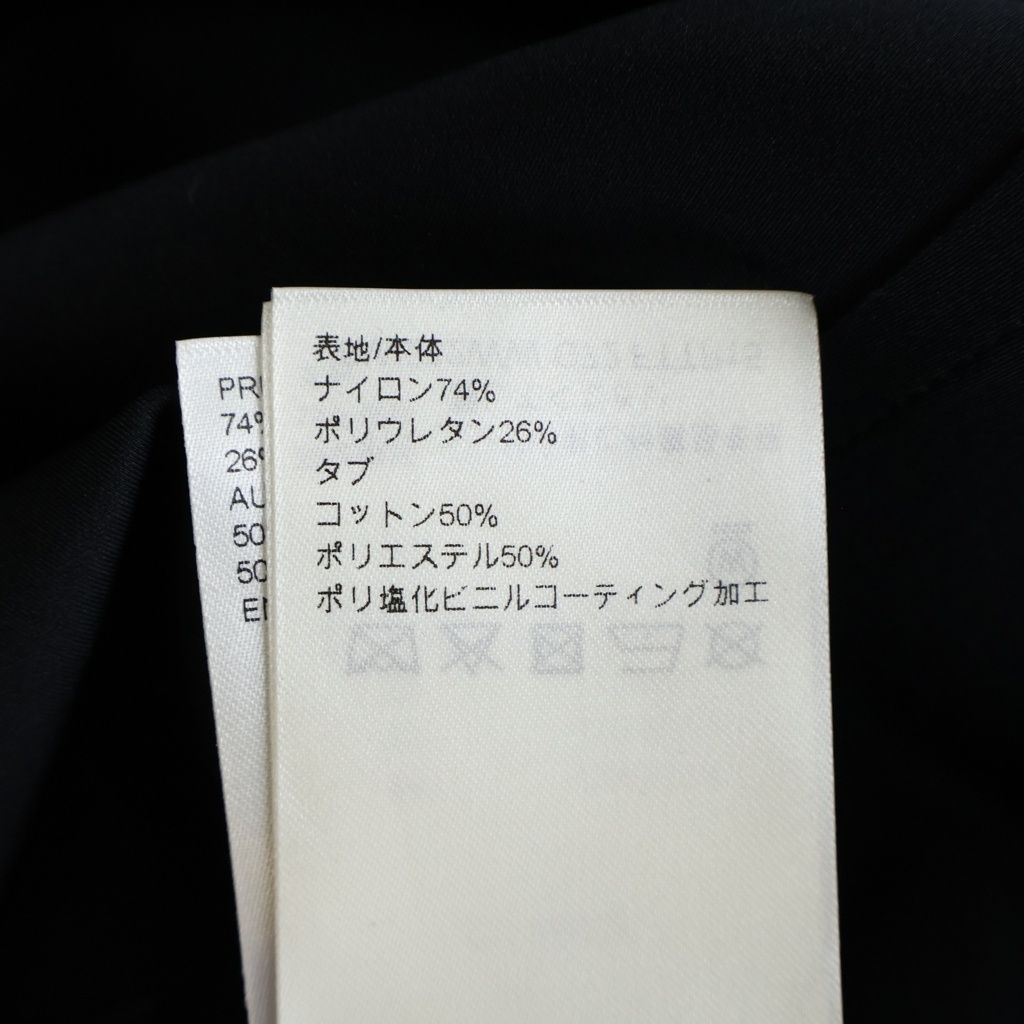 表地/本体
ナイロン74%
ポリウレタン26%
タブ
コットン50%
ポリエステル50%
ポリ塩化ビニルコーティング加工
74%
26%
50
50